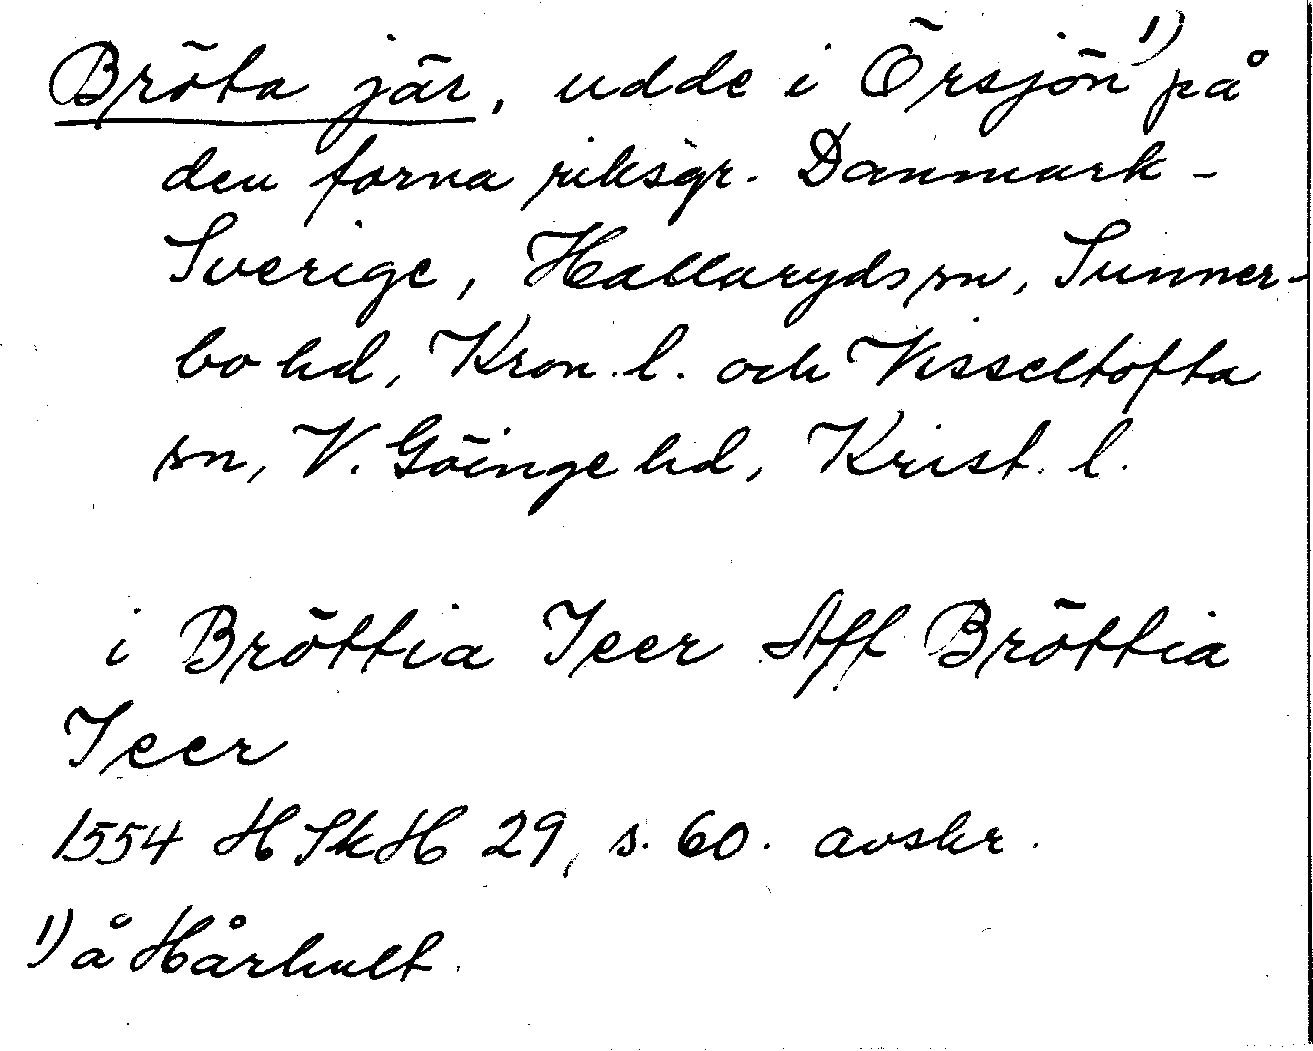 Bröta jär, udde i Örsjön 1) på
den forna riksgr. Danmark -
Sverige, Hallaryds sn, Sunner-
bo hd, Kron. l. och Visseltofta
sn, V. Göinge hd, Krist. l.
i Bröttia Jeer Aff Bröttia
Jeer
1554 HSkH 29, s. 60. avskr.
1) å Hårhult.